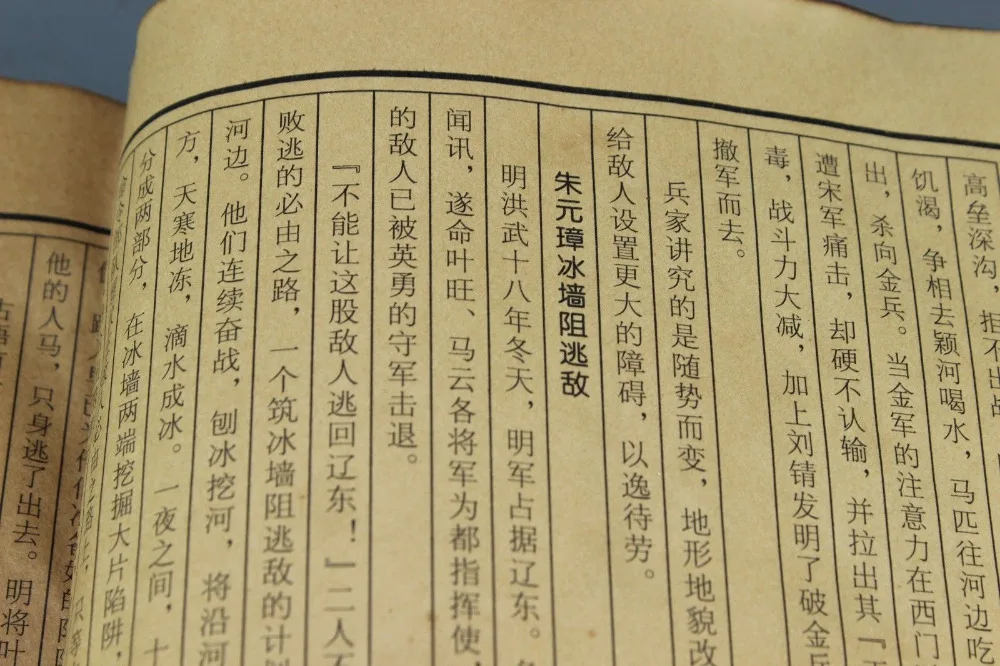 高垒深沟，拒不出战
饥渴，争相去颖河喝水，马匹往河边吃
出，杀向金兵。当金军的注意力在西门
遭宋军痛击，却硬不认输，并拉出其『
毒，战斗力大减，加上刘锜发明了破金兵
撤军而去。
兵家讲究的是随势而变，地形地貌改
给敌人设置更大的障碍，以逸待劳。
朱元璋冰墙阻逃敌
明洪武十八年冬天，明军占据辽东。
闻讯，遂命叶旺、马云各将军为都指挥使，
的敌人已被英勇的守军击退。
『不能让这股敌人逃回辽东！』二人
败逃的必由之路，一个筑冰墙阻逃敌的计
河边。他们连续奋战，刨冰挖河，将沿河
方，天寒地冻，滴水成冰。一夜之间，
分成两部分，在冰墙两端挖掘大片陷阱，
他的人马，只身逃了出去。明将叶